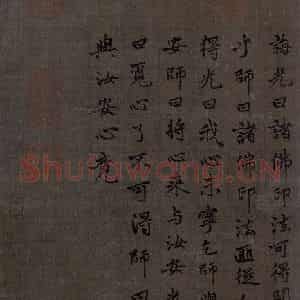 誨光曰諸佛印法可得聞
乎師曰諸佛印法匪從人
得光曰我心未寧乞師與
安師曰將心來与汝安
曰覓心了不可得師曰
與汝安心竟
Shufawang.CN